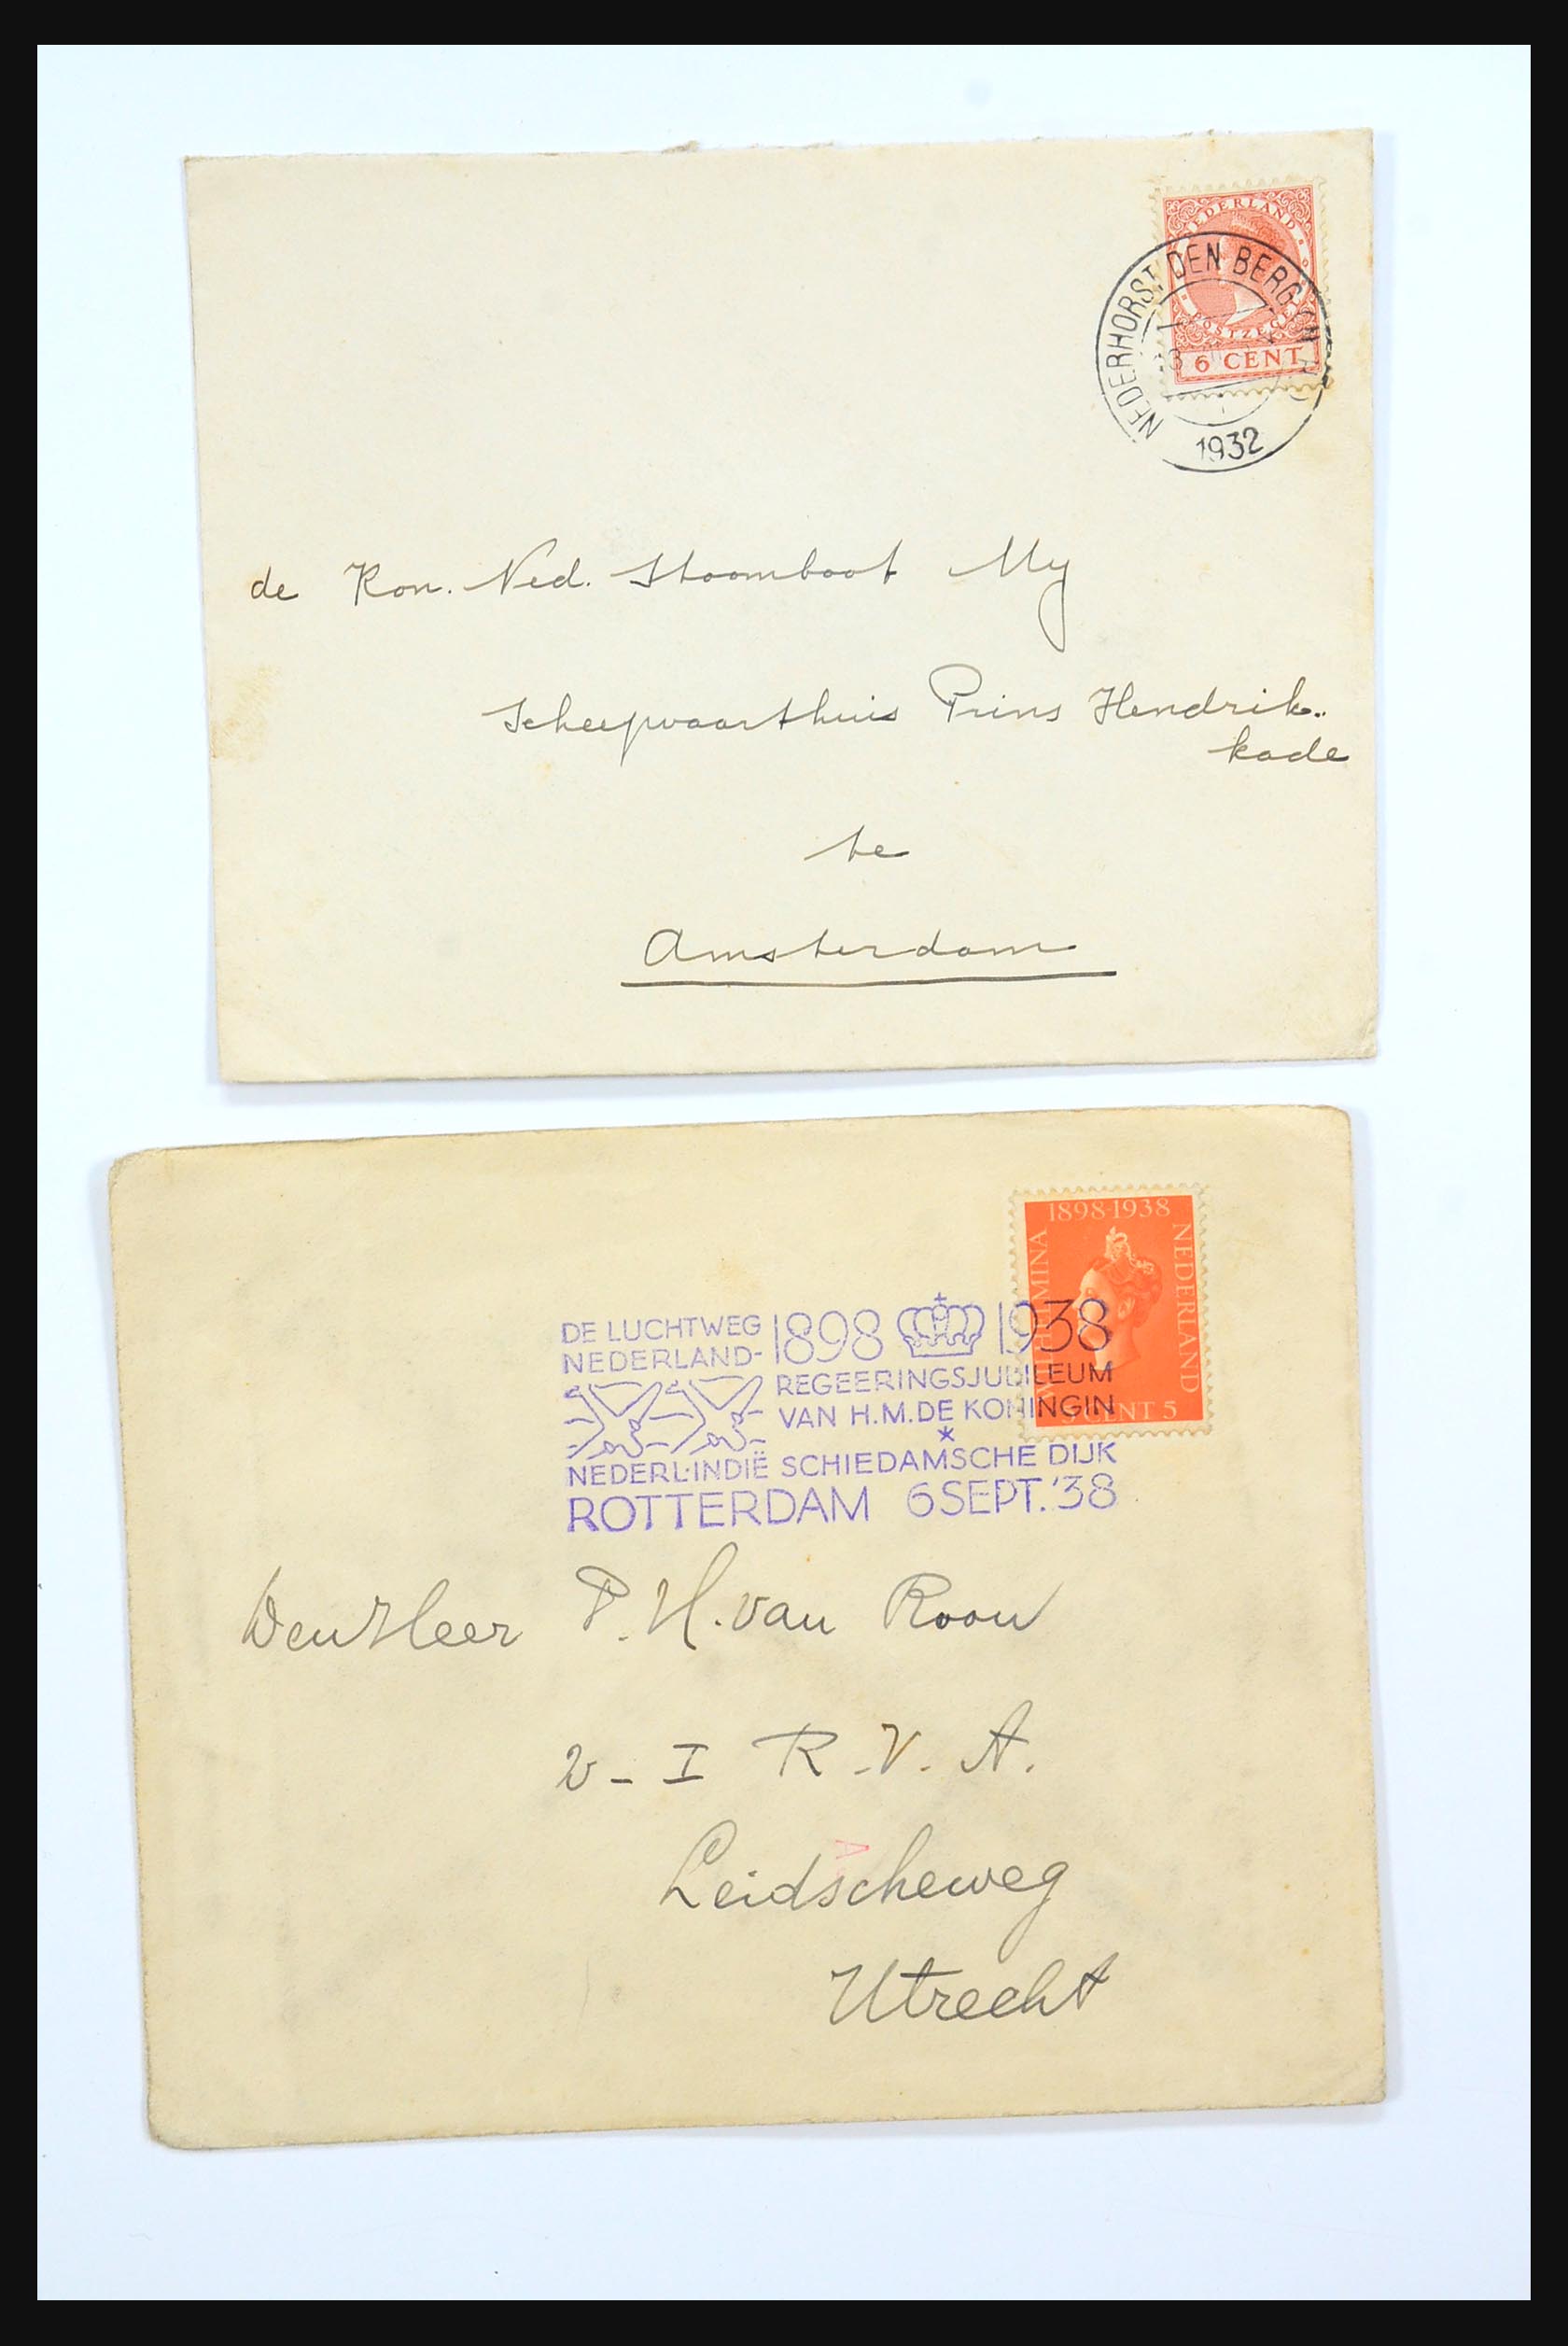 NEDERLAND
POSTZEGEL
6 CENT
NEDERHORST DEN BERG
1932
de Kon. Ned. Stoomboot My
Scheepvaarthuis Prins Hendrik-
kade
te
Amsterdam
1898-1938
WILHELMINA
NEDERLAND
5 CENT 5
DE LUCHTWEG
NEDERLAND-
NEDERL-INDIË
1898 1938
REGEERINGSJUBILEUM
VAN H.M. DE KONINGIN
*
SCHIEDAMSCHE DIJK
ROTTERDAM 6 SEPT. '38
Den Heer P. H. van Roon
2 - I R. V. A.
Leidscheweg
Utrecht